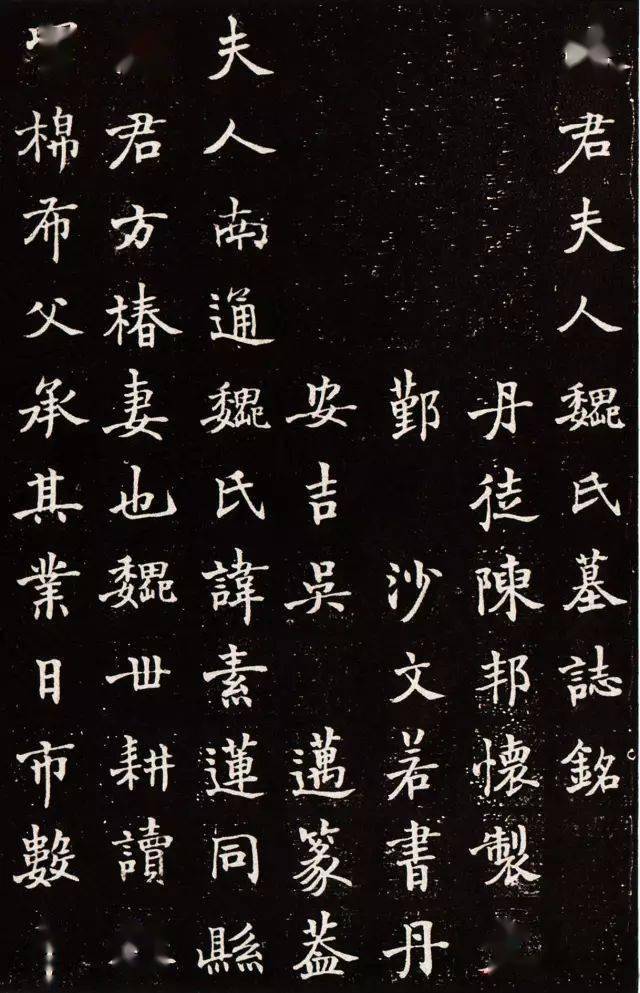 君夫人魏氏墓誌銘
丹徒陳邦懷製
鄞 沙文若書丹
安吉吳 邁篆蓋
夫人南通魏氏諱素蓮同縣
君方椿妻也魏世耕讀
棉布父承其業日市數